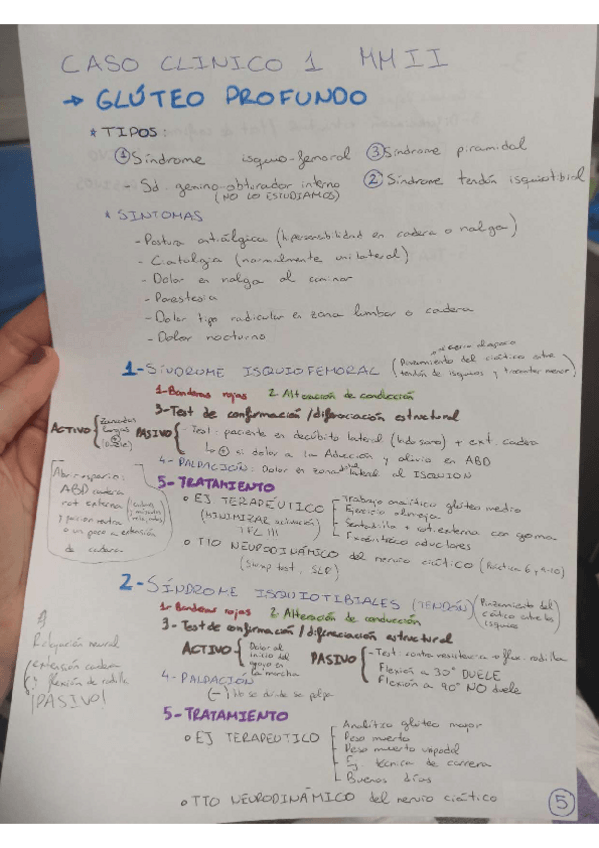 CASO CLINICO 1 MMII
→ GLÚTEO PROFUNDO
* TIPOS:
① Síndrome isquio-femoral ③ Síndrome piramidal
- Sd. gemino-obturador interno ② Síndrome tendón isquiotibial
(NO LO ESTUDIAMOS)
* SINTOMAS
- Postura antiálgica (hipersensibilidad en cadera o nalga)
- Ciatalgia (normalmente unilateral)
- Dolor en nalga al caminar
- Parestesia
- Dolor tipo radicular en zona lumbar o cadera
- Dolor nocturno
1- SÍNDROME ISQUIOFEMORAL (Pinzamiento del ciático entre
tendón de isquios y trocánter menor)
1- Banderas rojas 2- Alteración de conducción
3- Test de confirmación / diferenciación estructural
ACTIVO { Zancadas largas
PASIVO { - Test: paciente en decúbito lateral (lado sano) + ext. cadera
↳ ⊕ si dolor a la Aducción y alivio en ABD
4- PALPACIÓN: Dolor en zona lateral al ISQUION
5- TRATAMIENTO
ABD cadera
rot externa
y posición neutra
o un poco en extensión
de cadera
o EJ TERAPÉUTICO
(MINIMIZAR activación
TFL !!!)
- Trabajo analítico glúteo medio
- Ejercicio almeja
- Sentadilla + rot. externa con goma
- Excéntrico aductores
o TTO NEURODINÁMICO del nervio ciático (Práctica 6, 9-10)
(Slump test, SLR)
2- SÍNDROME ISQUIOTIBIALES (TENDÓN) (Pinzamiento del
ciático entre los
isquios
1- Banderas rojas 2- Alteración de conducción
3- Test de confirmación / diferenciación estructural
ACTIVO { Dolor al
inicio del
apoyo en
la marcha
PASIVO { - Test: contra resistencia a flex. rodilla
Flexión a 30° DUELE
Flexión a 90° NO duele
4- PALPACIÓN
(-)
Relajación neural
(extensión cadera
y flexión de rodilla
¡PASIVO!
5- TRATAMIENTO
o EJ TERAPEUTICO
- Analítico glúteo mayor
- Peso muerto
- Peso muerto unipodal
- Ej técnica de carrera
- Buenos días
o TTO NEURODINÁMICO del nervio ciático
5